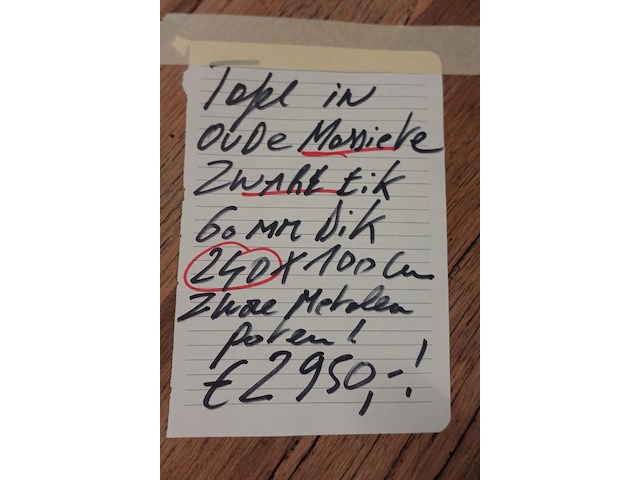 Tafel in
OUDe Massieve
ZWARE Eik
60 mm Dik
240 X 100 Cm
Zware Metalen
poten!
€ 2950,-!